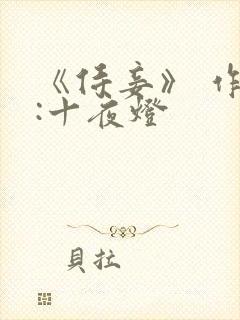 《侍妾》 作
:十夜燈
貝拉